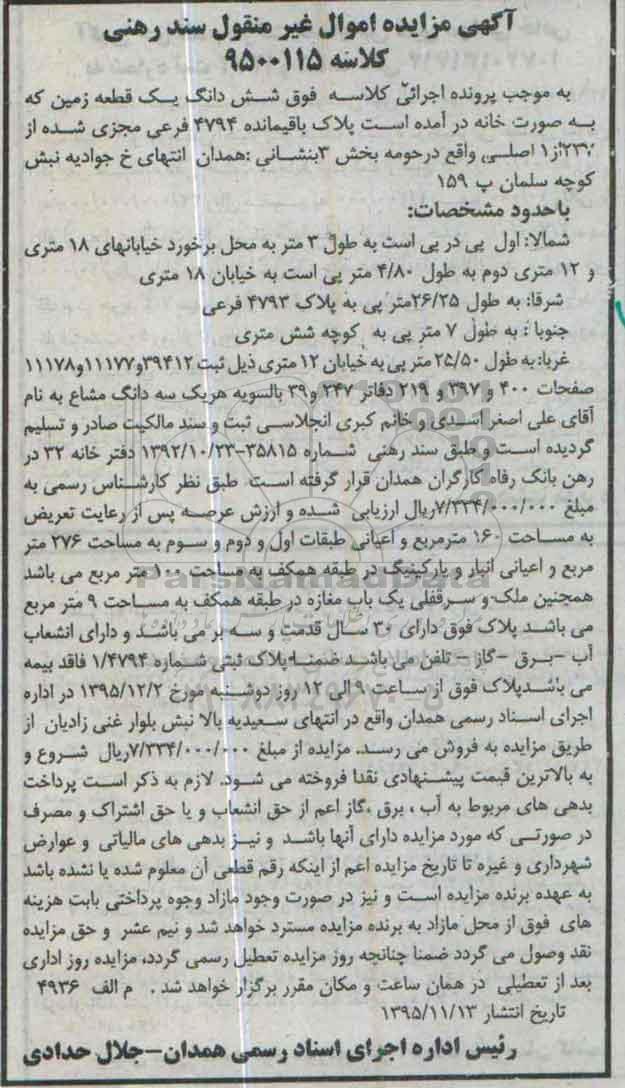 آگهی مزایده اموال غیر منقول سند رهنی
کلاسه ۹۵۰۰۱۱۵
به موجب پرونده اجرائی کلاسه فوق شش دانگ یک قطعه زمین که
به صورت خانه در آمده است پلاک باقیمانده ۴۷۹۴ فرعی مجزی شده از
۲۳۷از۱ اصلی واقع درحومه بخش ۳بنشانی :همدان انتهای خ جوادیه نبش
کوچه سلمان پ ۱۵۹
باحدود مشخصات:
شمالا: اول پی در پی است به طول ۳ متر به محل برخورد خیابانهای ۱۸ متری
و ۱۲ متری دوم به طول ۴/۸۰ متر پی است به خیابان ۱۸ متری
شرقا: به طول ۲۶/۲۵متر پی به پلاک ۴۷۹۳ فرعی
جنوبا : به طول ۷ متر پی به کوچه شش متری
غربا: به طول ۲۵/۵۰ متر پی به خیابان ۱۲ متری ذیل ثبت ۳۹۴۱۲و۱۱۱۷۷و۱۱۱۷۸
صفحات ۴۰۰ و ۳۹۷ و ۲۱۹ دفاتر ۲۴۷ و۳۹ بالسویه هریک سه دانگ مشاع به نام
آقای علی اصغر اسدی و خانم کبری انجلاسی ثبت و سند مالکیت صادر و تسلیم
گردیده است و طبق سند رهنی شماره ۳۵۸۱۵-۱۳۹۲/۱۰/۲۳ دفتر خانه ۳۲ در
رهن بانک رفاه کارگران همدان قرار گرفته است طبق نظر کارشناس رسمی به
مبلغ ۷/۳۳۴/۰۰۰/۰۰۰ریال ارزیابی شده و ارزش عرصه پس از رعایت تعریض
به مساحت ۱۶۰ مترمربع و اعیانی طبقات اول و دوم و سوم به مساحت ۲۷۶ متر
مربع و اعیانی انبار و پارکینیگ در طبقه همکف به مساحت ۱۰۰ متر مربع می باشد
همچنین ملک و سرقفلی یک باب مغازه در طبقه همکف به مساحت ۹ متر مربع
می باشد پلاک فوق دارای ۳۰ سال قدمت و سه بر می باشد و دارای انشعاب
آب -برق -گاز - تلفن می باشد ضمنا پلاک ثبتی شماره ۱/۴۷۹۴ فاقد بیمه
می باشدپلاک فوق از ساعت ۹ الی ۱۲ روز دوشنبه مورخ ۱۳۹۵/۱۲/۲ در اداره
اجرای اسناد رسمی همدان واقع در انتهای سعیدیه بالا نبش بلوار غنی زادیان از
طریق مزایده به فروش می رسد. مزایده از مبلغ ۷/۳۳۴/۰۰۰/۰۰۰ریال شروع و
به بالاترین قیمت پیشنهادی نقدا فروخته می شود. لازم به ذکر است پرداخت
بدهی های مربوط به آب ، برق ،گاز اعم از حق انشعاب و یا حق اشتراک و مصرف
در صورتی که مورد مزایده دارای آنها باشد و نیز بدهی های مالیاتی و عوارض
شهرداری و غیره تا تاریخ مزایده اعم از اینکه رقم قطعی آن معلوم شده یا نشده باشد
به عهده برنده مزایده است و نیز در صورت وجود مازاد وجوه پرداختی بابت هزینه
های فوق از محل مازاد به برنده مزایده مسترد خواهد شد و نیم عشر و حق مزایده
نقد وصول می گردد ضمنا چنانجه روز مزایده تعطیل رسمی گردد، مزایده روز اداری
بعد از تعطیلی در همان ساعت و مکان مقرر برگزار خواهد شد . م الف ۴۹۳۶
تاریخ انتشار ۱۳۹۵/۱۱/۱۳
رئیس اداره اجرای اسناد رسمی همدان-جلال حدادی
ParsNamadData